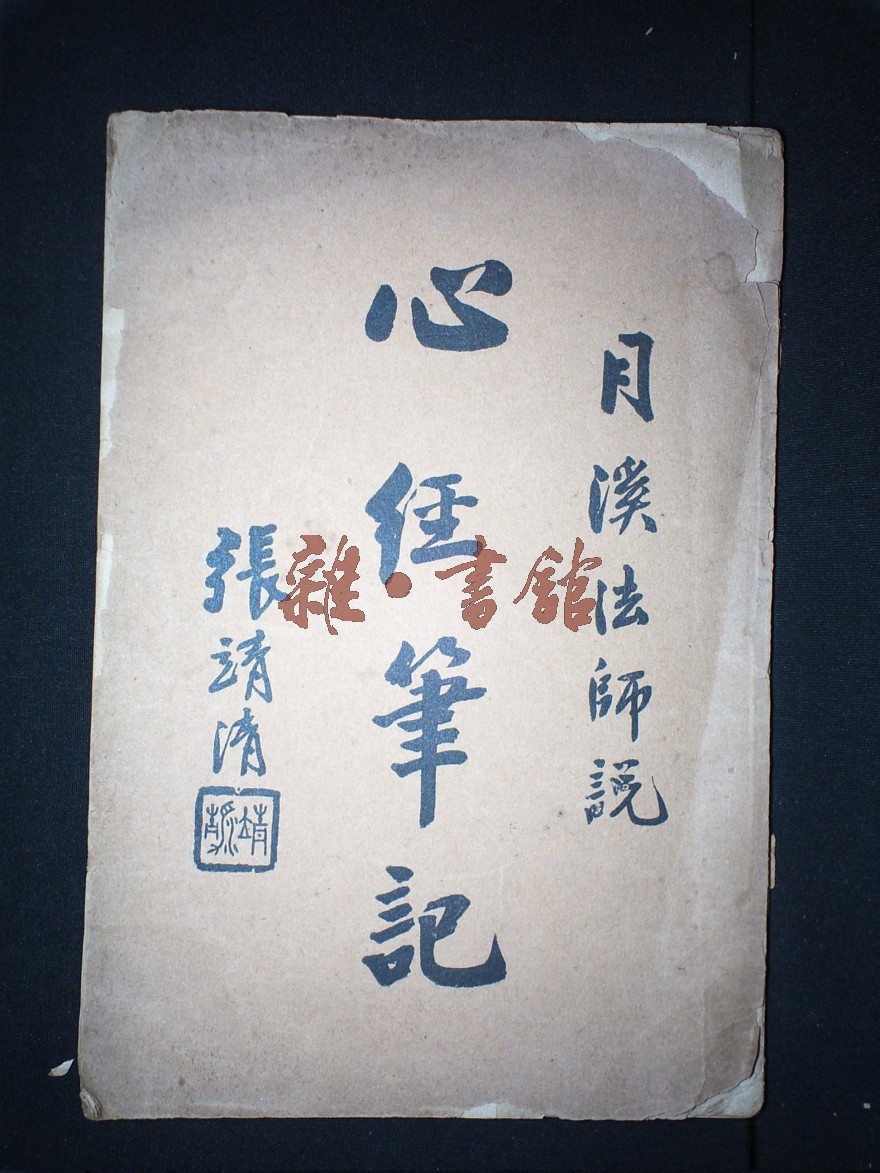 月溪法師說
心經筆記
張靖清
雜·書館